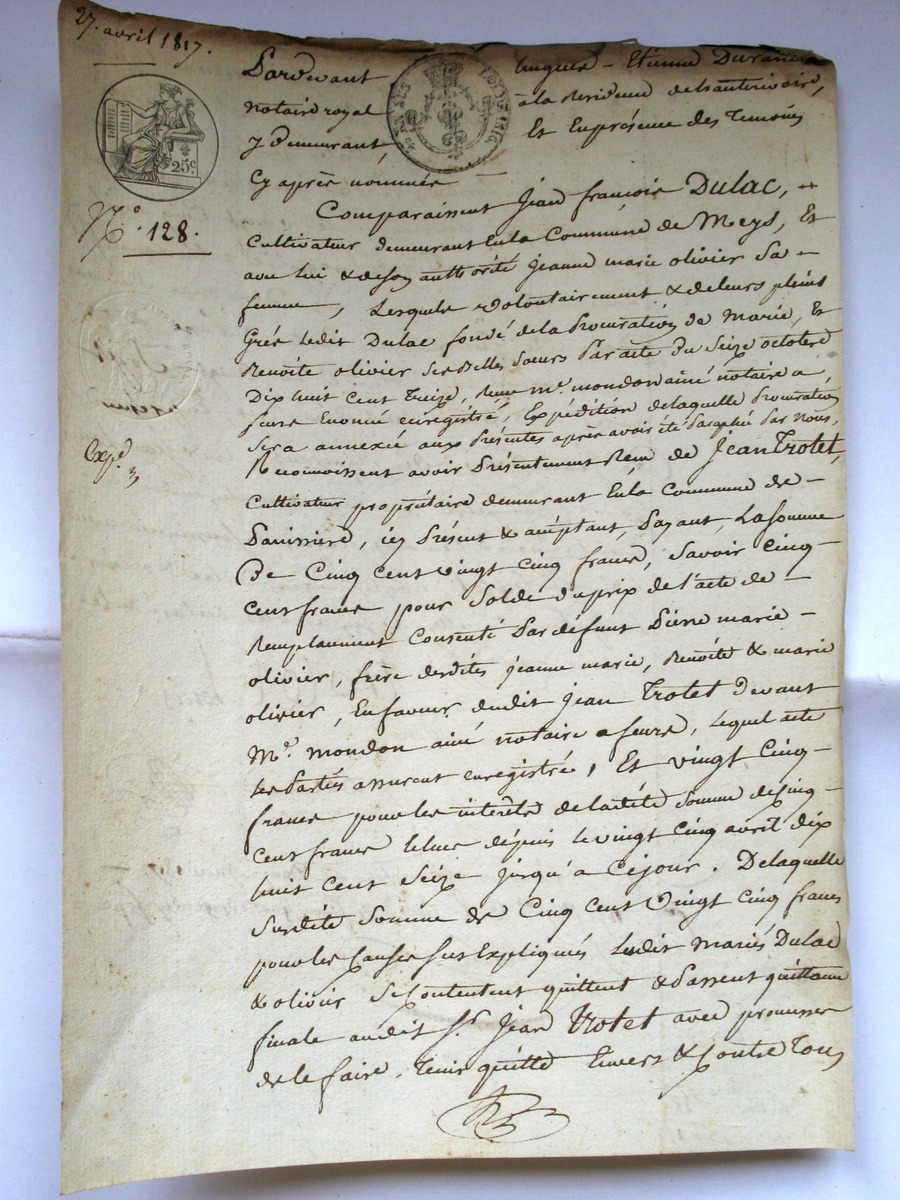 27. avril 1817.
25c.
N.° 128.
Exp.é
Pardevant Etienne Durand
notaire royal à la Résidence de hauterivoire,
y demeurant Et En présence des Temoins
Cy après nommés
Comparaissent Jean françois Dulac,
Cultivateur demeurant En la Commune de Meys, Et
avec lui & de son authorité jeanne marie olivier Sa
femme, Lesquels volontairement & de leurs pleins
Grés Ledit Dulac fondé de la Procuration de Marie, Et
Benoîte olivier ses Belles sœurs Par acte du Seize octobre
Dix huit Cent Treize, Reçue M.e mondon ainé notaire a
feurs Enoncé enregistré, Expédition de laquelle Procuration
Sera annexée aux Présentes après avoir été Paraphée Par Nous,
Reconnoissent avoir Présentement Reçu de Jean Trotet,
Cultivateur propriétaire demeurant En la Commune de
Panissiere, icy Présent & acceptant, Payant, La Somme
De Cinq Cent Vingt Cinq francs, Savoir Cinq
Cent francs pour Solde du prix de l'acte de
Remplacement Consenti Par défunt Pierre marie
olivier, frère desdites jeanne marie, Benoîte & marie
olivier, En faveur dudit jean Trotet Devant
M.e mondon ainé notaire a feurs, Lequel acte
Les Parties assurent enregistré, Et Vingt Cinq
francs pour les intérêts de ladite Somme de Cinq
Cent francs Echus depuis Le vingt Cinq avril dix
huit Cent Seize jusqu'a Cejour. De laquelle
Susdite Somme de Cinq Cent Vingt Cinq francs
pour les Causes sus Expliqués Lesdit Mariés Dulac
& olivier Se Contentent quittent & Passent quittance
finale audit S.r Jean Trotet avec promesse
de le faire Tenir quitte Envers & Contre Tous